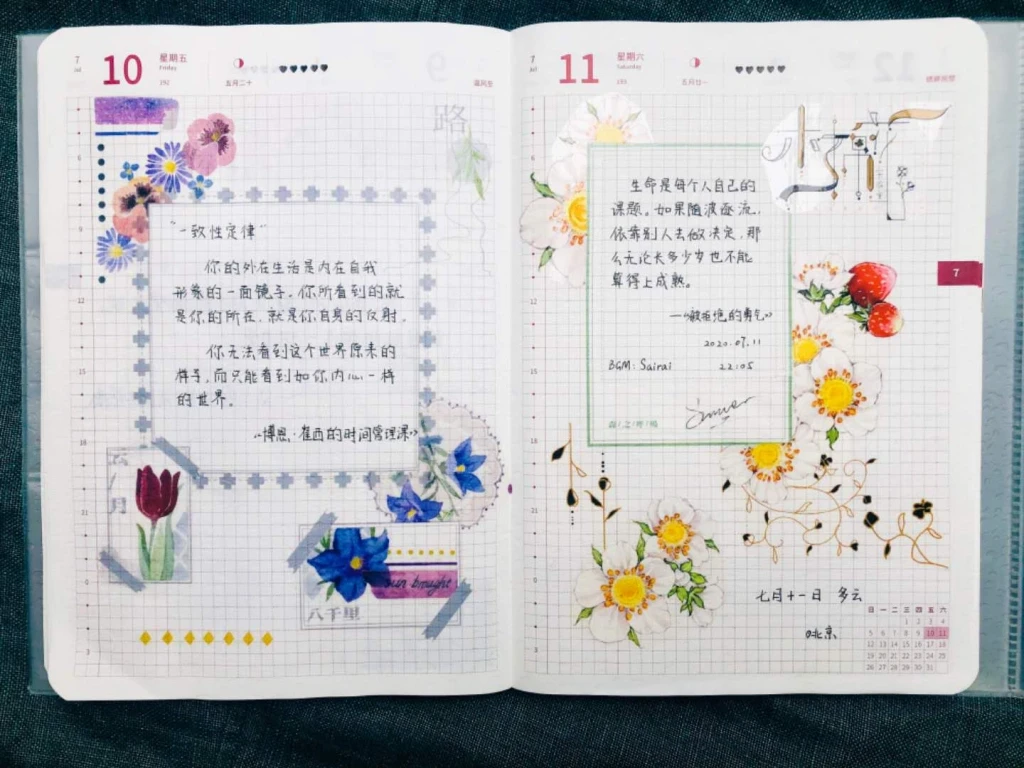 7
Jul
10
星期五
Friday
192
五月二十
路
“一致性定律”
你的外在生活是内在自我
形象的一面镜子。你所看到的就
是你的所在，就是你自身的反射。
你无法看到这个世界原来的
样子，而只能看到如你内心一样
的世界。
《博恩·崔西的时间管理课》
月
sun bright
八千里
7
Jul
11
星期六
Saturday
193
五月廿一
生命是每个人自己的
课题。如果随波逐流，
依靠别人去做决定，那
么无论长多少岁也不能
算得上成熟。
——《被拒绝的勇气》
2020.07.11
BGM: Sairai 22:05
7
七月十一日 多云
@北京
日 一 二 三 四 五 六
1 2 3 4
5 6 7 8 9 10 11
12 13 14 15 16 17 18
19 20 21 22 23 24 25
26 27 28 29 30 31